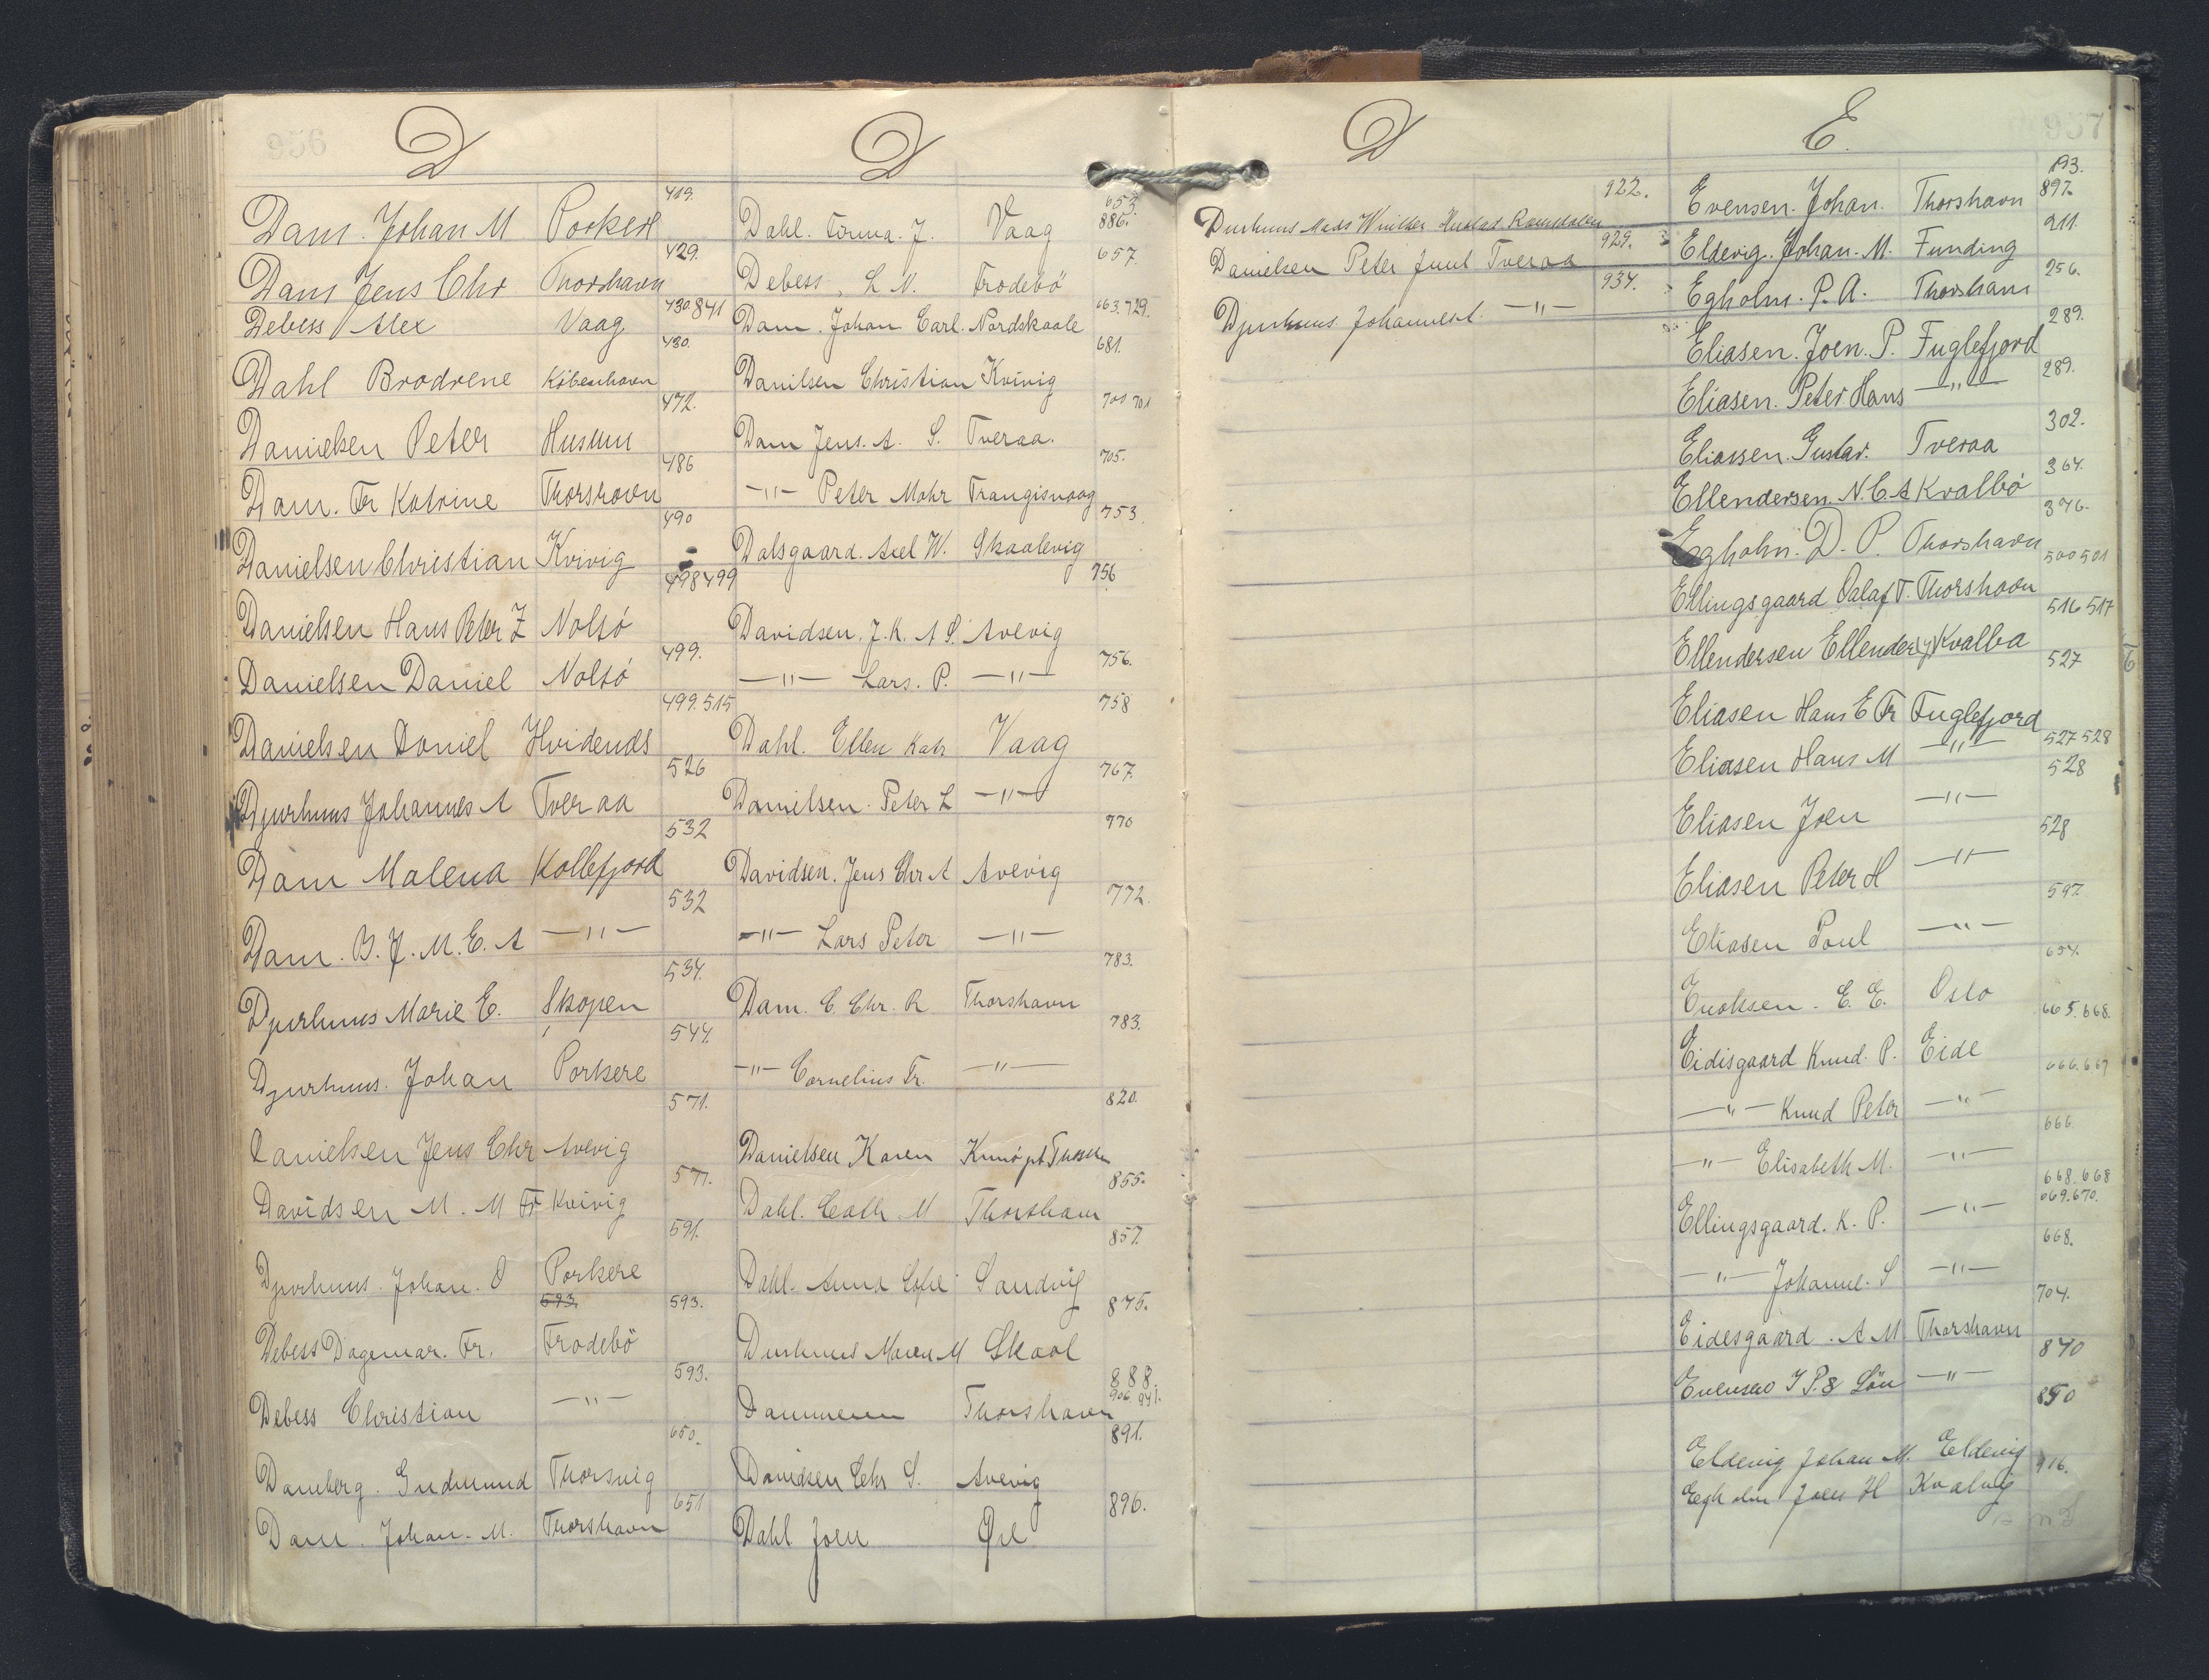 956
D
419.
Dam. Johan M Porkere
429.
Dam Jens Chr Thorshavn
430 841
Debess Alex Vaag
430.
Dahl Brodrene Köbenhavn
472.
Danielsen Peter Husum
486
Dam. Fr Katrine Thorshavn
490
Danielsen Christian Kvivig
498 499
Danielsen Hans Peter Z Nolsö
499.
Danielsen Daniel Nolsö
499. 515
Danielsen Daniel Hvidenæs
526
Djurhuus Johannes A Tveraa
532
Dam Malena Kollefjord
532
Dam. B. J. M. E. A —"—
534.
Djurhuus Marie E. Skopen
544.
Djurhuus. Johan Porkere
571.
Danielsen Jens Chr Avevig
577.
Davidsen M. M Fr Kvivig
591.
Djurhuus. Johan. O Porkere
593. 593.
Debess Dagmar. Fr. Frodebö
593.
Debess Christian —"—
650.
Damberg. Gudmund Thorsvig
651
Dam. Johan. M. Thorshavn
D
653.
886.
Dahl. J. Vaag
657
Debess, L N. Frodebö
663. 729.
Dam. Johan Carl. Nordskaale
681.
Danilsen Christian Kvivig
701 701
Dam Jens. A. S. Tveraa.
705.
—"— Peter Mohr Trangisvaag
753
Dalsgaard. Axel W. Skaalevig
756
Davidsen. J. K. A S. Avevig
756.
—"— Lars. P. —"—
758
Dahl. Ellen Kath Vaag
767.
Danielsen. Peter L —"—
770
Davidsen. Jens Chr A Avevig
772.
—"— Lars Peter —"—
783.
Dam. C. Chr. R Thorshavn
783.
—"— Cornelius Fr. —"—
820.
Danielsen Karen Kunö pt Thorshn
855.
Dahl. Cath. M Thorshavn
857.
Dahl. Anna Sofie Sandvig
875.
Djurhuus Maren M Skaal
888.
906. 941.
Thorshavn
891.
Davidsen Chr S. Avevig
896.
Dahl Joen Øre
D
922.
Djurhuus Mads Winther
929.
Danielsen Peter Juul Tveraa
934.
Djurhuus. Johannes A. —"—
957
E.
193.
897.
Evensen. Johan. Thorshavn
211.
Eldevig. Johan. M. Funding
256.
Egholm. P. A. Thorshavn
289.
Eliasen. Joen. P. Fuglefjord
289.
Eliasen. Peter Hans —"—
302.
Eliassen. Gustav. Tveraa
364.
Ellendersen. N. C. A Kvalbö
376.
Egholm. D. P. Thorshavn
500 501
Ellingsgaard Oalaf T. Thorshavn
516 517
Ellendersen Ellender (y) Kvalba
527
Eliasen Hans E Fr Fuglefjord
527 528
Eliasen Hans M —"—
528
Eliasen Joen —"—
528
Eliasen Peter H —"—
597.
Eliasen Poul —"—
654.
Enoksen. E. E. Oslo
665. 668.
Eidisgaard Knud. P. Eide
666. 667
—"— Knud Peter —"—
666
—"— Elisabeth M. —"—
668. 668
669. 670.
Ellingsgaard. K. P. —"—
668.
—"— Johanne. S —"—
704.
Eidesgaard. A. M Thorshavn
840
Evensen J P. & Sön —"—
850
Eldevig Johan M. Eldevig
916.
Egholm Joen H Kvalvig